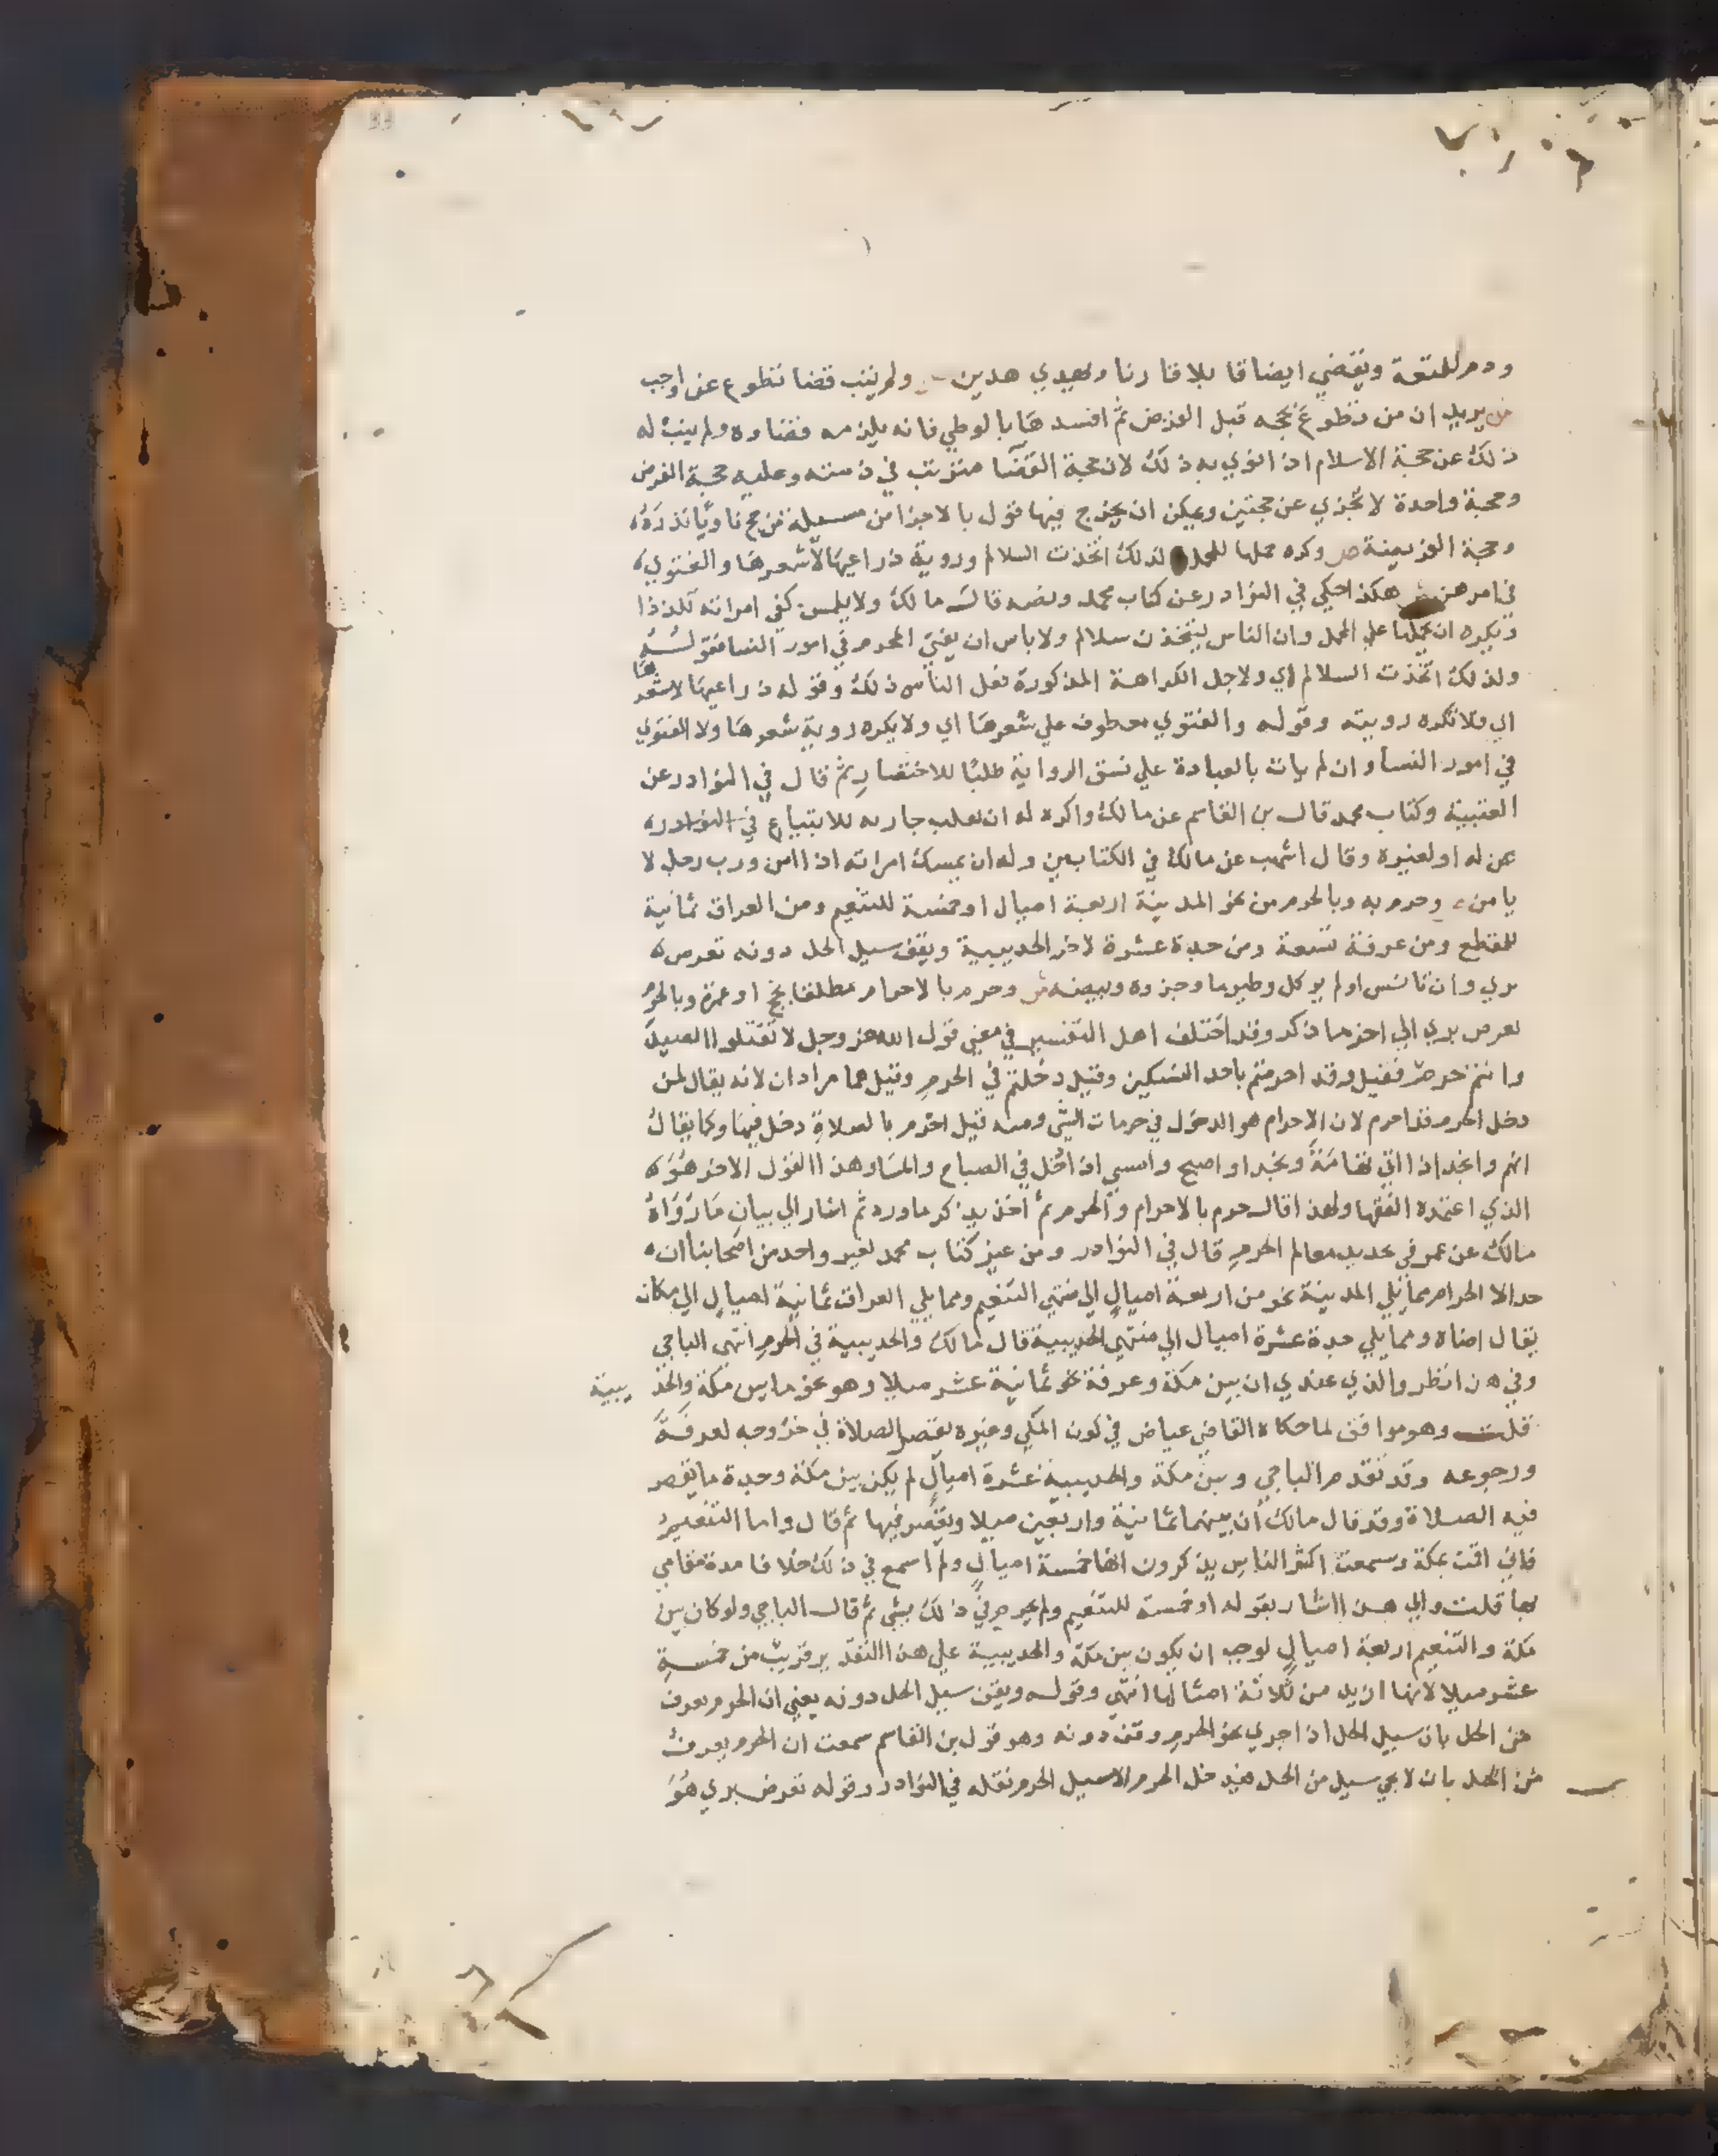 ودم للمتعة ويقضي ايضا قابلا قارنا ويهدي هديين ولم ينب قضا تطوع عن واجب
ش يريد ان من تطوع بحجه قبل الفرض ثم افسدها بالوطي فانه يلزمه قضاوه ولم ينب له
ذلك عن حجة الاسلام اذا نوي به ذلك لان حجة القضا مترتب في ذمته وعليه حجة الفرض
وحجة واحدة لا تجزي عن حجتين ويمكن ان يخرج فيها قول بالاجزا من مسيلة من حج ناويا نذره
وحجة الفريضة ص وكره حملها للمحمل لذلك اتخذت السلالم وروية ذراعيها لا شعرها والفتوي
في امرهن ش هكذا حكي في النوادر عن كتاب محمد ونصه قال مالك ولا يلمس كفي امراته تلذذا
ويكره ان يحملها علي المحمل وان الناس ليتخذن سلالم ولا باس ان يفتي المحرم في امور النسا فقوله
ولذلك اتخذت السلالم اي ولاجل الكراهة المذكورة فعل الناس ذلك وقوله ذراعيها لا شعرها
اي فلا تكره رويته وقوله والفتوي معطوف علي شعرها اي ولا يكره روية شعرها ولا الفتوي
في امور النسا وان لم يات بالعبادة علي نسق الرواية طلبا للاختصار ثم قال في النوادر عن
العتبية وكتاب محمد قال بن القاسم عن مالك واكره له ان يقلب جاريه للابتياع في النوادر
عن له او لغيره وقال اشهب عن مالك في الكتابين وله ان يمسك امراته اذا امن ورب رجل لا
يامن ص وحرم به وبالحرم من نحو المدينة اربعة اميال او خمسة للتنعيم ومن العراق ثمانية
للمقطع ومن عرفة تسعة ومن جدة عشرة لاخر الحديبية ويقف سيل الحل دونه تعرض
بري وان تانس او لم يوكل وطيرما وجزوه وبيضه ش وحرم بالاحرام مطلقا بحج او عمرة وبالحرم
تعرض بري الي اخر ما ذكر وقد اختلف اهل التفسير في معني قول الله عز وجل لا تقتلوا الصيد
وانتم حرم فقيل وقد احرمتم باحد النسكين وقيل دخلتم في الحرم وقيل هما مرادان لانه يقال لمن
دخل الحرم قد احرم لان الاحرام هو الدخول في حرمات الشي ومنه قيل احرم بالصلاة دخل فيها وكما يقال
اتهم وانجد اذا اتي تهامة ونجدا واصبح وامسي اذا دخل في الصباح والمسا وهذا القول الاخر هو
الذي اعتمده الفقها ولهذا قال حرم بالاحرام والحرم ثم اخذ يذكر ما ورد ثم اشار الي بيان ما رواه
مالك عن عمر في تحديد معالم الحرم قال في النوادر ومن غير كتاب محمد لغير واحد من اصحابنا ان
حد الا الحرام مما يلي المدينة نحو من اربعة اميال الي منتهي التنعيم ومما يلي العراق ثمانية اميال الي مكان
يقال اضاه ومما يلي جدة عشرة اميال الي منتهي الحديبية قال مالك والحديبية في الحرم انتهي الباجي
وفي هذا نظر والذي عندي ان بين مكة وعرفة نحو ثمانية عشر ميلا وهو نحو ما بين مكة والحديبية
قلت وهو موافق لما حكاه القاضي عياض في كون المكي وغيره يقصر الصلاة في خروجه لعرفة
ورجوعه وقد تقدم الباجي وبين مكة والحديبية عشرة اميال لم يكن بين مكة وجدة ما يقصر
فيه الصلاة وقد قال مالك ان بينهما ثمانية واربعين ميلا ويقصر فيها ثم قال واما التنعيم
فاني اقمت بمكة وسمعت اكثر الناس يذكرون انها خمسة اميال ولم اسمع في ذلك خلافا مدة مقامي
بها قلت والي هذا اشار بقوله او خمسة للتنعيم ولم يجزم في ذلك بشي ثم قال الباجي ولو كان بين
مكة والتنعيم اربعة اميال لوجب ان يكون بين مكة والحديبية علي هذا التقدير قريب من خمسة
عشر ميلا لانها ازيد من ثلاثة امثالها انتهي وقوله ويقف سيل الحل دونه يعني ان الحرم يعرف
من الحل بان سيل الحل اذا جري نحو الحرم وقف دونه وهو قول بن القاسم سمعت ان الحرم يعرف
من الحل بان لا يجي سيل من الحل فيدخل الحرم الا سيل الحرم نقله في النوادر وقوله تعرض بري هو